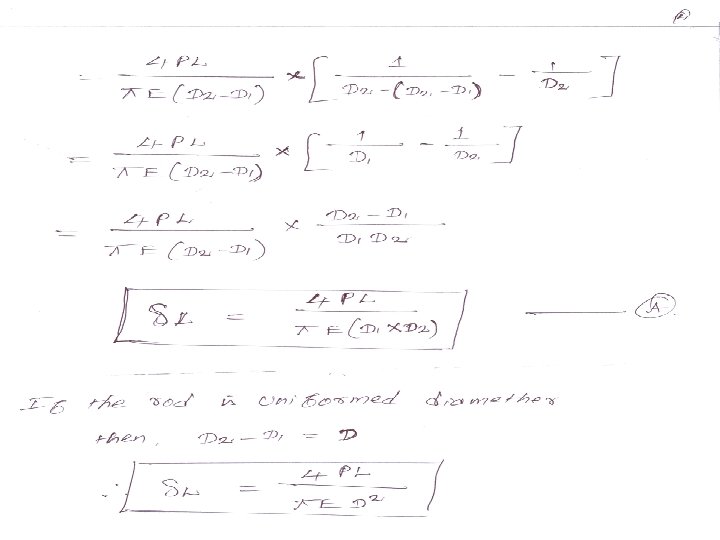 = 4PL / πE(D2-D1) × [ 1 / D2-(D2-D1) - 1 / D2 ]
= 4PL / πE(D2-D1) × [ 1 / D1 - 1 / D2 ]
= 4PL / πE(D2-D1) × D2-D1 / D1 D2
δL = 4PL / πE(D1×D2) (A)
If the rod is uniformed diamether
then, D2-D1 = D
∴ δL = 4PL / πE D²